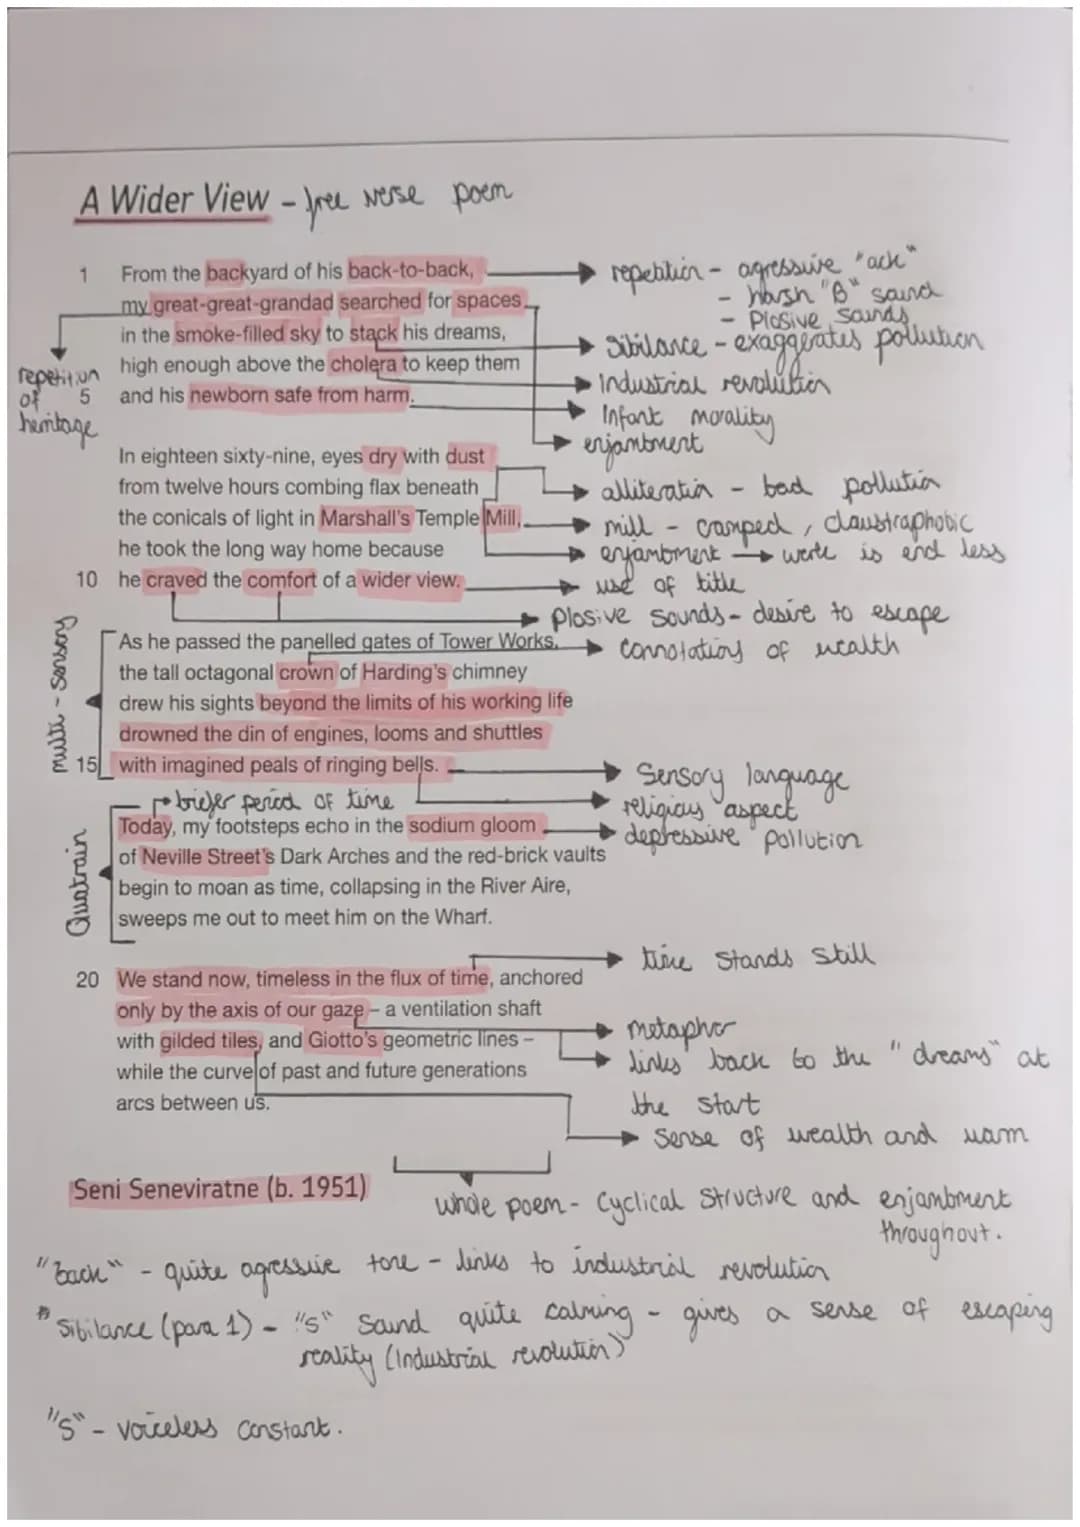 A Wider View - free verse poem
1 From the backyard of his back-to-back,
my great-great-grandad searched for spaces
in the smoke-filled sky to stack his dreams,
high enough above the cholera to keep them
5 and his newborn safe from harm.
repetition
of
heritage
repetition - agressive "ack"
- harsh "B" sound
- Plosive sounds
Sibilance - exaggerates pollution
Industrial revolution
Infant morality
enjambment
In eighteen sixty-nine, eyes dry with dust
from twelve hours combing flax beneath
the conicals of light in Marshall's Temple Mill,
he took the long way home because
10 he craved the comfort of a wider view.
alliteration - bad pollution
mill - cramped, claustraphobic
enjambment → work is end less
use of title
Plosive sounds - desire to escape
multi-sensory
As he passed the panelled gates of Tower Works,
the tall octagonal crown of Harding's chimney
drew his sights beyond the limits of his working life
drowned the din of engines, looms and shuttles
15 with imagined peals of ringing bells.
connotations of wealth
Sensory language
religious aspect
depressive pollution
briefer period of time
Quatrain
Today, my footsteps echo in the sodium gloom
of Neville Street's Dark Arches and the red-brick vaults
begin to moan as time, collapsing in the River Aire,
sweeps me out to meet him on the Wharf.
20 We stand now, timeless in the flux of time, anchored
only by the axis of our gaze – a ventilation shaft
with gilded tiles, and Giotto's geometric lines –
while the curve of past and future generations
arcs between us.
time stands still
metaphor
links back to the "dreams" at
the start
sense of wealth and
Seni Seneviratne (b. 1951)
whole poem - Cyclical structure and enjambment
throughout.
"back" - quite agressive tone - links to industrial revolution
* Sibilance (para 1) - "s" sound quite calming - gives a sense of escaping
reality (Industrial revolution)
"S" - voiceless constant.